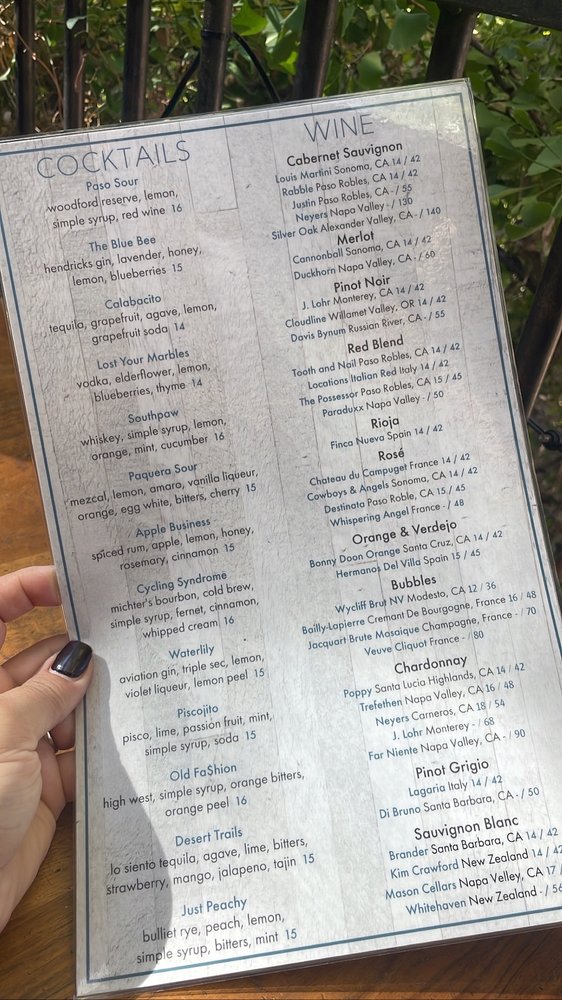 COCKTAILS
Paso Sour
woodford reserve, lemon,
simple syrup, red wine 16
The Blue Bee
hendricks gin, lavender, honey,
lemon, blueberries 15
Calabacito
tequila, grapefruit, agave, lemon,
grapefruit soda 14
Lost Your Marbles
vodka, elderflower, lemon,
blueberries, thyme 14
Southpaw
whiskey, simple syrup, lemon,
orange, mint, cucumber 16
Paquera Sour
mezcal, lemon, amaro, vanilla liqueur,
orange, egg white, bitters, cherry 15
Apple Business
spiced rum, apple, lemon, honey,
rosemary, cinnamon 15
Cycling Syndrome
michter's bourbon, cold brew,
simple syrup, fernet, cinnamon,
whipped cream 16
Waterlily
aviation gin, triple sec, lemon,
violet liqueur, lemon peel 15
Piscojito
pisco, lime, passion fruit, mint,
simple syrup, soda 15
Old Fa$hion
high west, simple syrup, orange bitters,
orange peel 16
Desert Trails
lo siento tequila, agave, lime, bitters,
strawberry, mango, jalapeno, tajin 15
Just Peachy
bulliet rye, peach, lemon,
simple syrup, bitters, mint 15
WINE
Cabernet Sauvignon
Louis Martini Sonoma, CA 14 / 42
Rabble Paso Robles, CA 14 / 42
Justin Paso Robles, CA - / 55
Neyers Napa Valley - / 130
Silver Oak Alexander Valley, CA - / 140
Merlot
Cannonball Sonoma, CA 14 / 42
Duckhorn Napa Valley, CA - / 60
Pinot Noir
J. Lohr Monterey, CA 14 / 42
Cloudline Willamet Valley, OR 14 / 42
Davis Bynum Russian River, CA - / 55
Red Blend
Tooth and Nail Paso Robles, CA 14 / 42
Locations Italian Red Italy 14 / 42
The Possessor Paso Robles, CA 15 / 45
Paraduxx Napa Valley - / 50
Rioja
Finca Nueva Spain 14 / 42
Rosé
Chateau du Campuget France 14 / 42
Cowboys & Angels Sonoma, CA 14 / 42
Destinata Paso Roble, CA 15 / 45
Whispering Angel France - / 48
Orange & Verdejo
Bonny Doon Orange Santa Cruz, CA 14 / 42
Hermanos Del Villa Spain 15 / 45
Bubbles
Wycliff Brut NV Modesto, CA 12 / 36
Bailly-Lapierre Cremant De Bourgogne, France 16 / 48
Jacquart Brute Mosaique Champagne, France - / 70
Veuve Cliquot France - / 80
Chardonnay
Poppy Santa Lucia Highlands, CA 14 / 42
Trefethen Napa Valley, CA 16 / 48
Neyers Carneros, CA 18 / 54
J. Lohr Monterey - / 68
Far Niente Napa Valley, CA - / 90
Pinot Grigio
Lagaria Italy 14 / 42
Di Bruno Santa Barbara, CA - / 50
Sauvignon Blanc
Brander Santa Barbara, CA 14 / 42
Kim Crawford New Zealand 14 / 42
Mason Cellars Napa Velley, CA 17 /
Whitehaven New Zealand - / 56